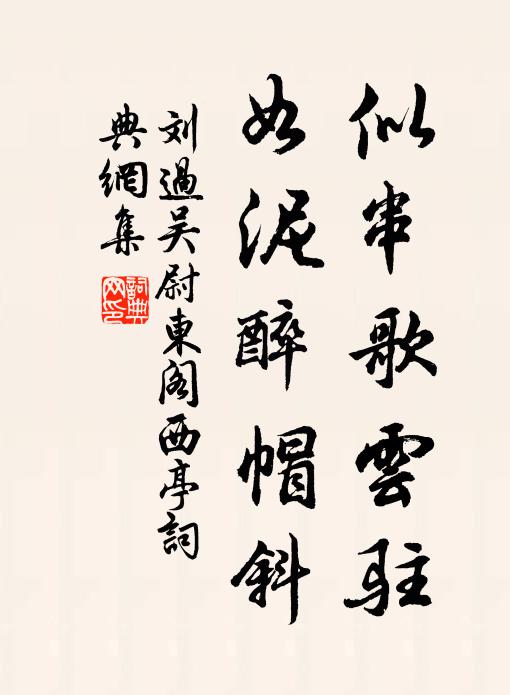 似串歌雲駐
如泥醉帽斜
刘過吴尉東阁西亭詞
典網集
詞典
网印